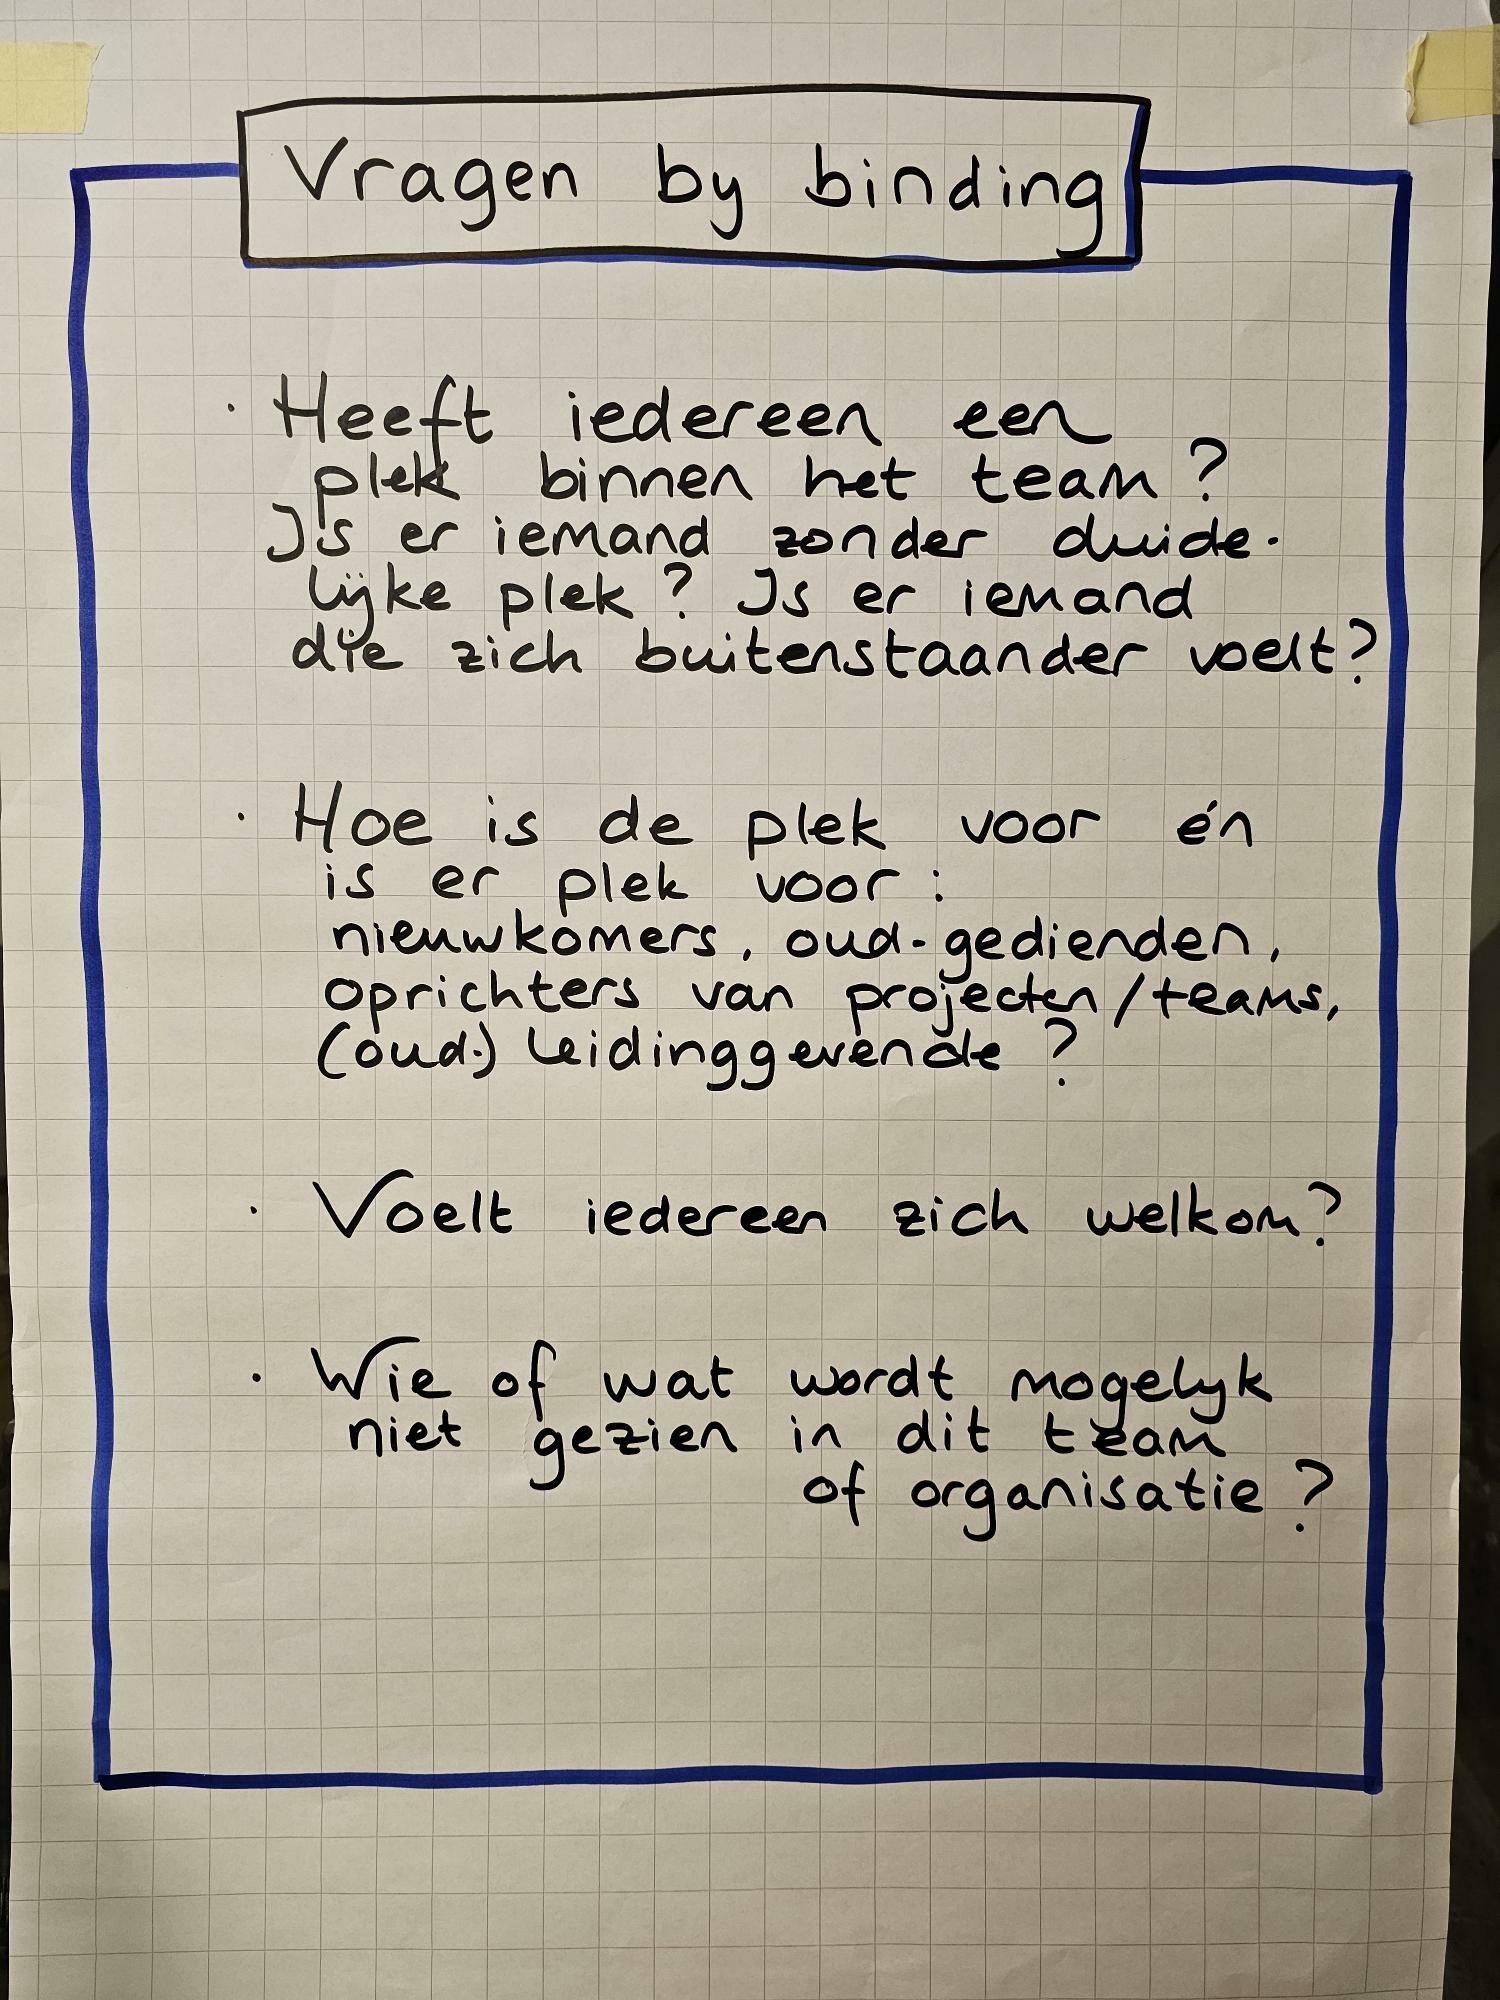 Vragen by binding
· Heeft iedereen een
plek binnen het team?
Is er iemand zonder duide-
lijke plek? Is er iemand
die zich buitenstaander voelt?
· Hoe is de plek voor én
is er plek voor:
nieuwkomers, oud-gedienden,
oprichters van projecten/teams,
(oud-) leidinggevende?
· Voelt iedereen zich welkom?
· Wie of wat wordt mogelyk
niet gezien in dit team
of organisatie?